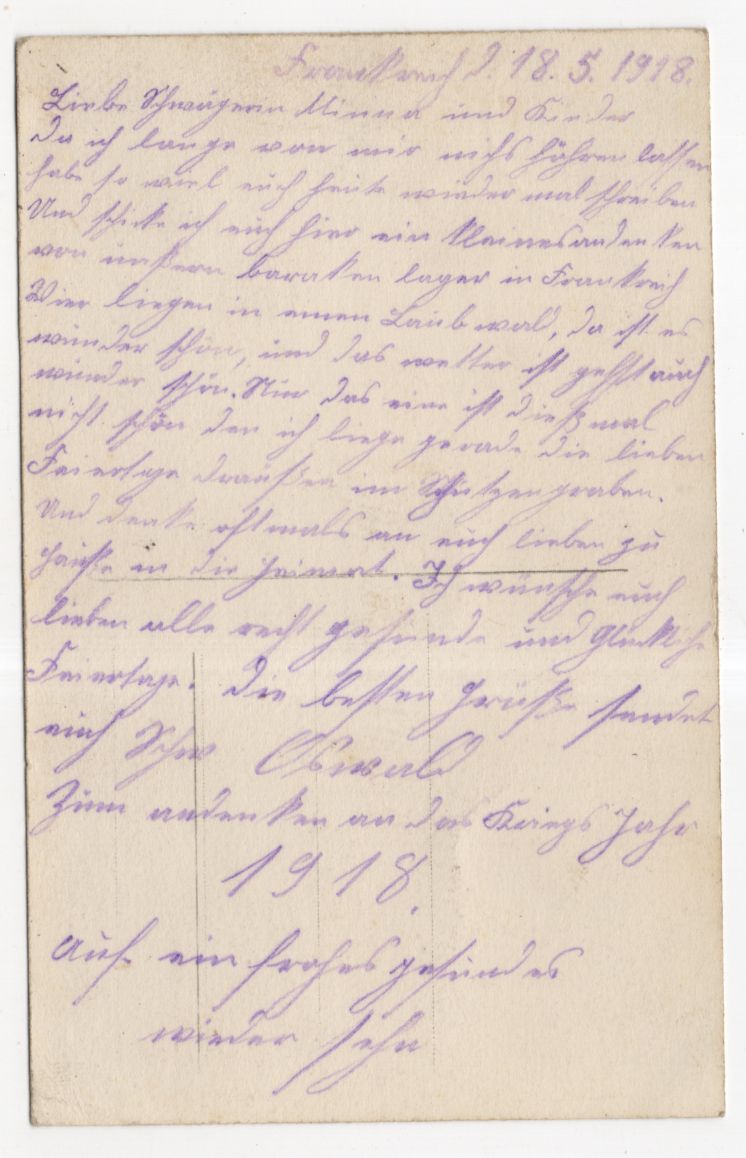 Frankreich d. 18.5.1918.
Liebe Schwägerin Minna und Kinder
da ich lange von mir nichs höhren lassen
habe so will euch heute wieder mal schreiben
Und schicke ich euch hier ein kleines andenken
von unsern baraken lager in Frankreich
Wier liegen in einen Laubwald, da ist es
wunder schön, und das wetter ist auch
wunder schön. Nur das eine ist dießmal
nicht schön den ich liege gerade die lieben
Feiertage draußen im Schützengraben.
Und denke oftmals an euch lieben zu
hauße in die heimat. Ich wünsche euch
lieben alle recht gesunde und Glückliche
Feiertage. Die besten Grüße sendet
euch Schw Oswald
Zum andenken an das Kriegs Jahr
1918.
Auf ein frohes gesundes
wieder sehn